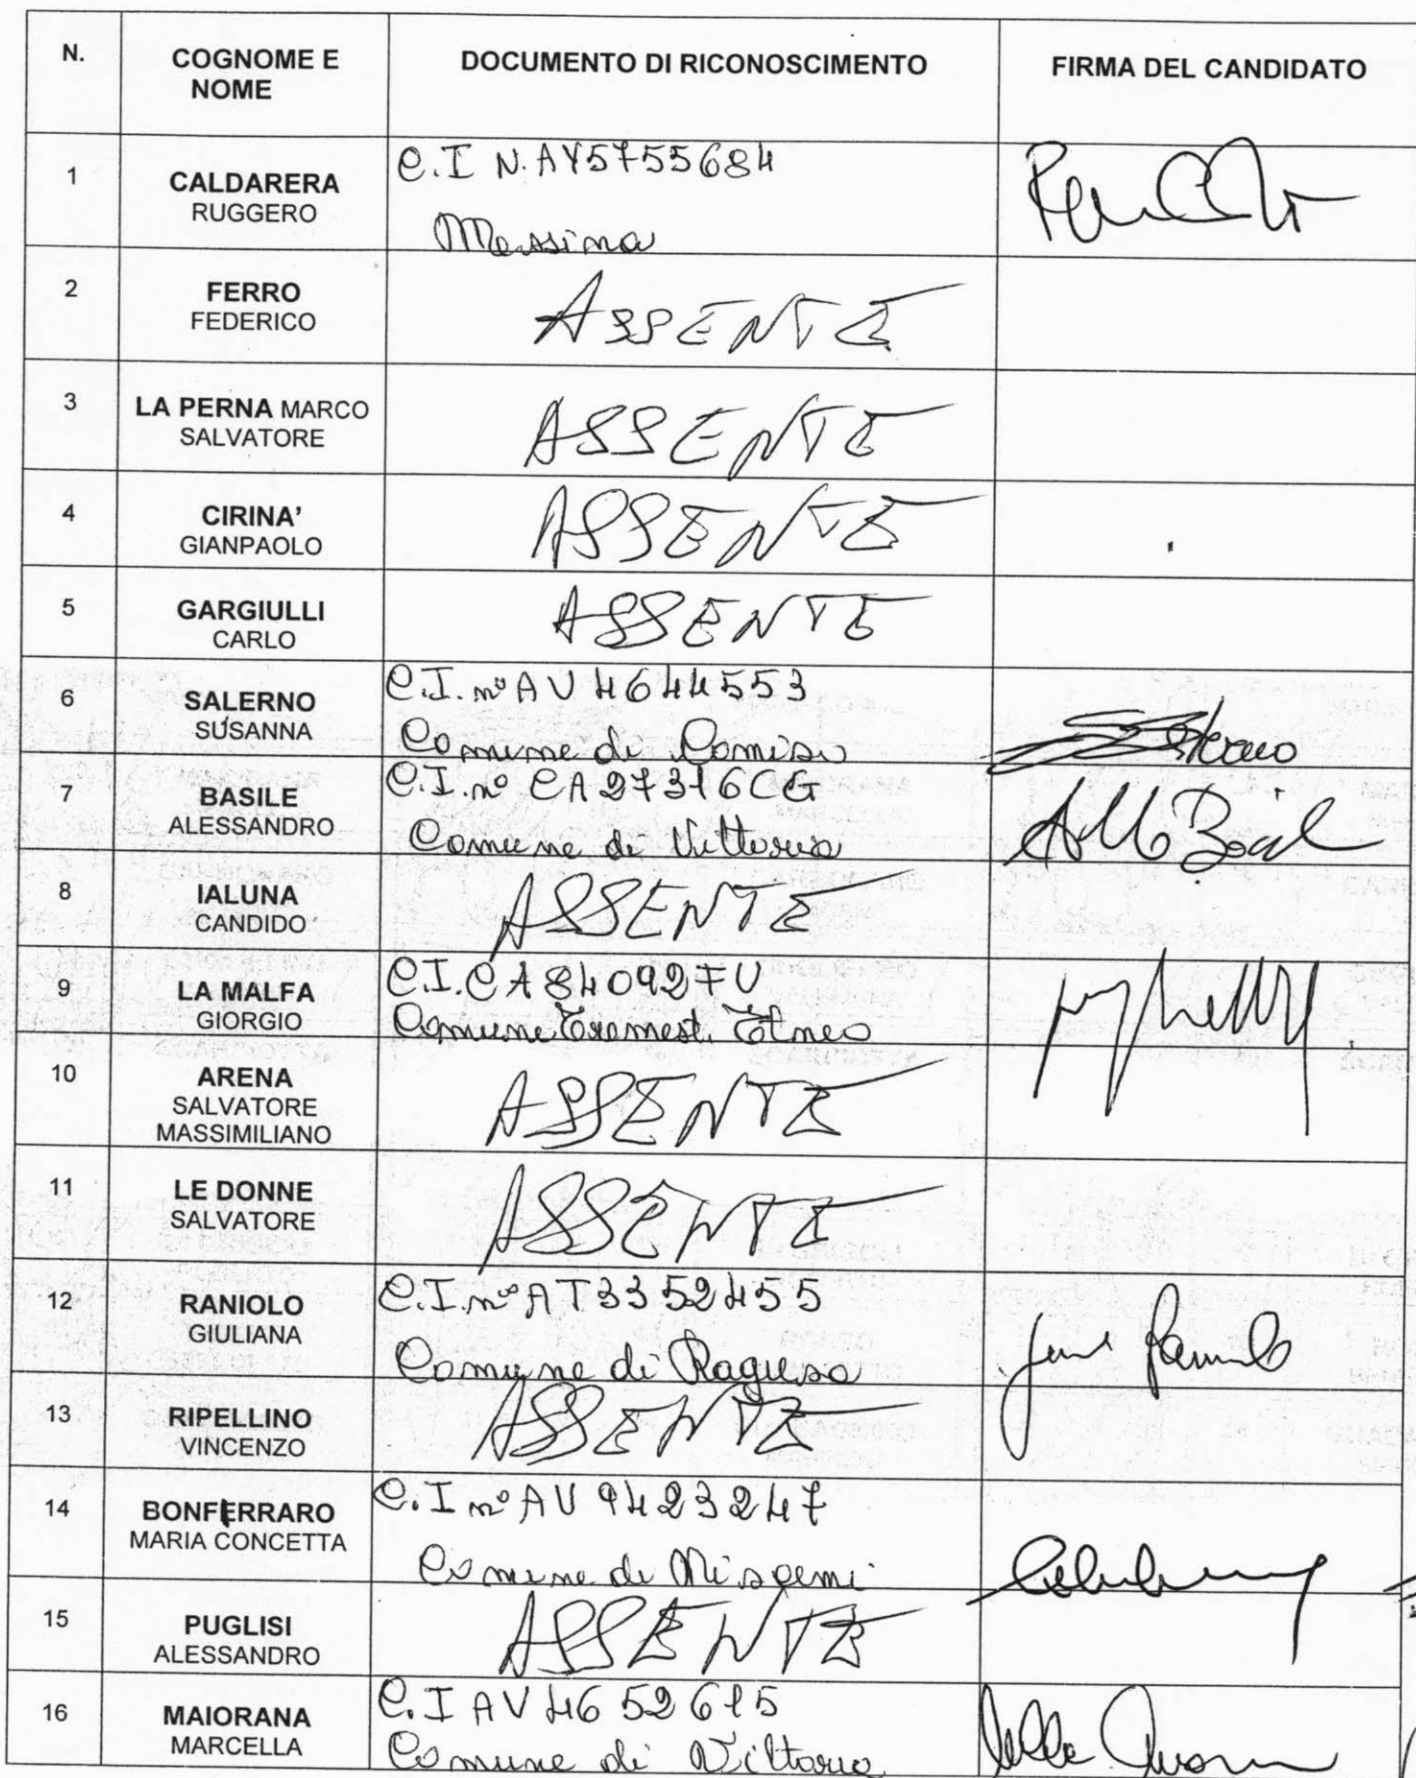 N. COGNOME E NOME DOCUMENTO DI RICONOSCIMENTO FIRMA DEL CANDIDATO
1 CALDARERA RUGGERO C.I N. AY5755684
Messina
2 FERRO FEDERICO ASSENTE
3 LA PERNA MARCO SALVATORE ASSENTE
4 CIRINA' GIANPAOLO ASSENTE
5 GARGIULLI CARLO ASSENTE
6 SALERNO SUSANNA C.I. n° AV 4644553
Comune di Comiso
7 BASILE ALESSANDRO C.I. n° CA27316CG
Comune di Vittoria
8 IALUNA CANDIDO ASSENTE
9 LA MALFA GIORGIO C.I. CA84092FU
Comune Tremest. Etneo
10 ARENA SALVATORE MASSIMILIANO ASSENTE
11 LE DONNE SALVATORE ASSENTE
12 RANIOLO GIULIANA C.I. n° AT3352455
Comune di Ragusa
13 RIPELLINO VINCENZO ASSENTE
14 BONFERRARO MARIA CONCETTA C.I n° AV 9423247
Comune di Niscemi
15 PUGLISI ALESSANDRO ASSENTE
16 MAIORANA MARCELLA C.I AV4652615
Comune di Vittoria